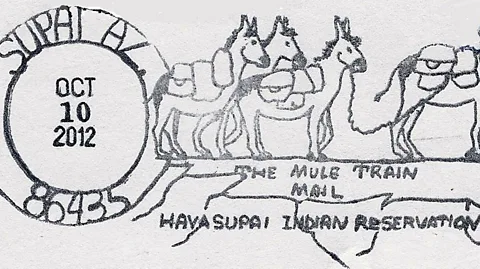 SUPAI AZ
OCT
10
2012
86435
THE MULE TRAIN
MAIL
HAVASUPAI INDIAN RESERVATION